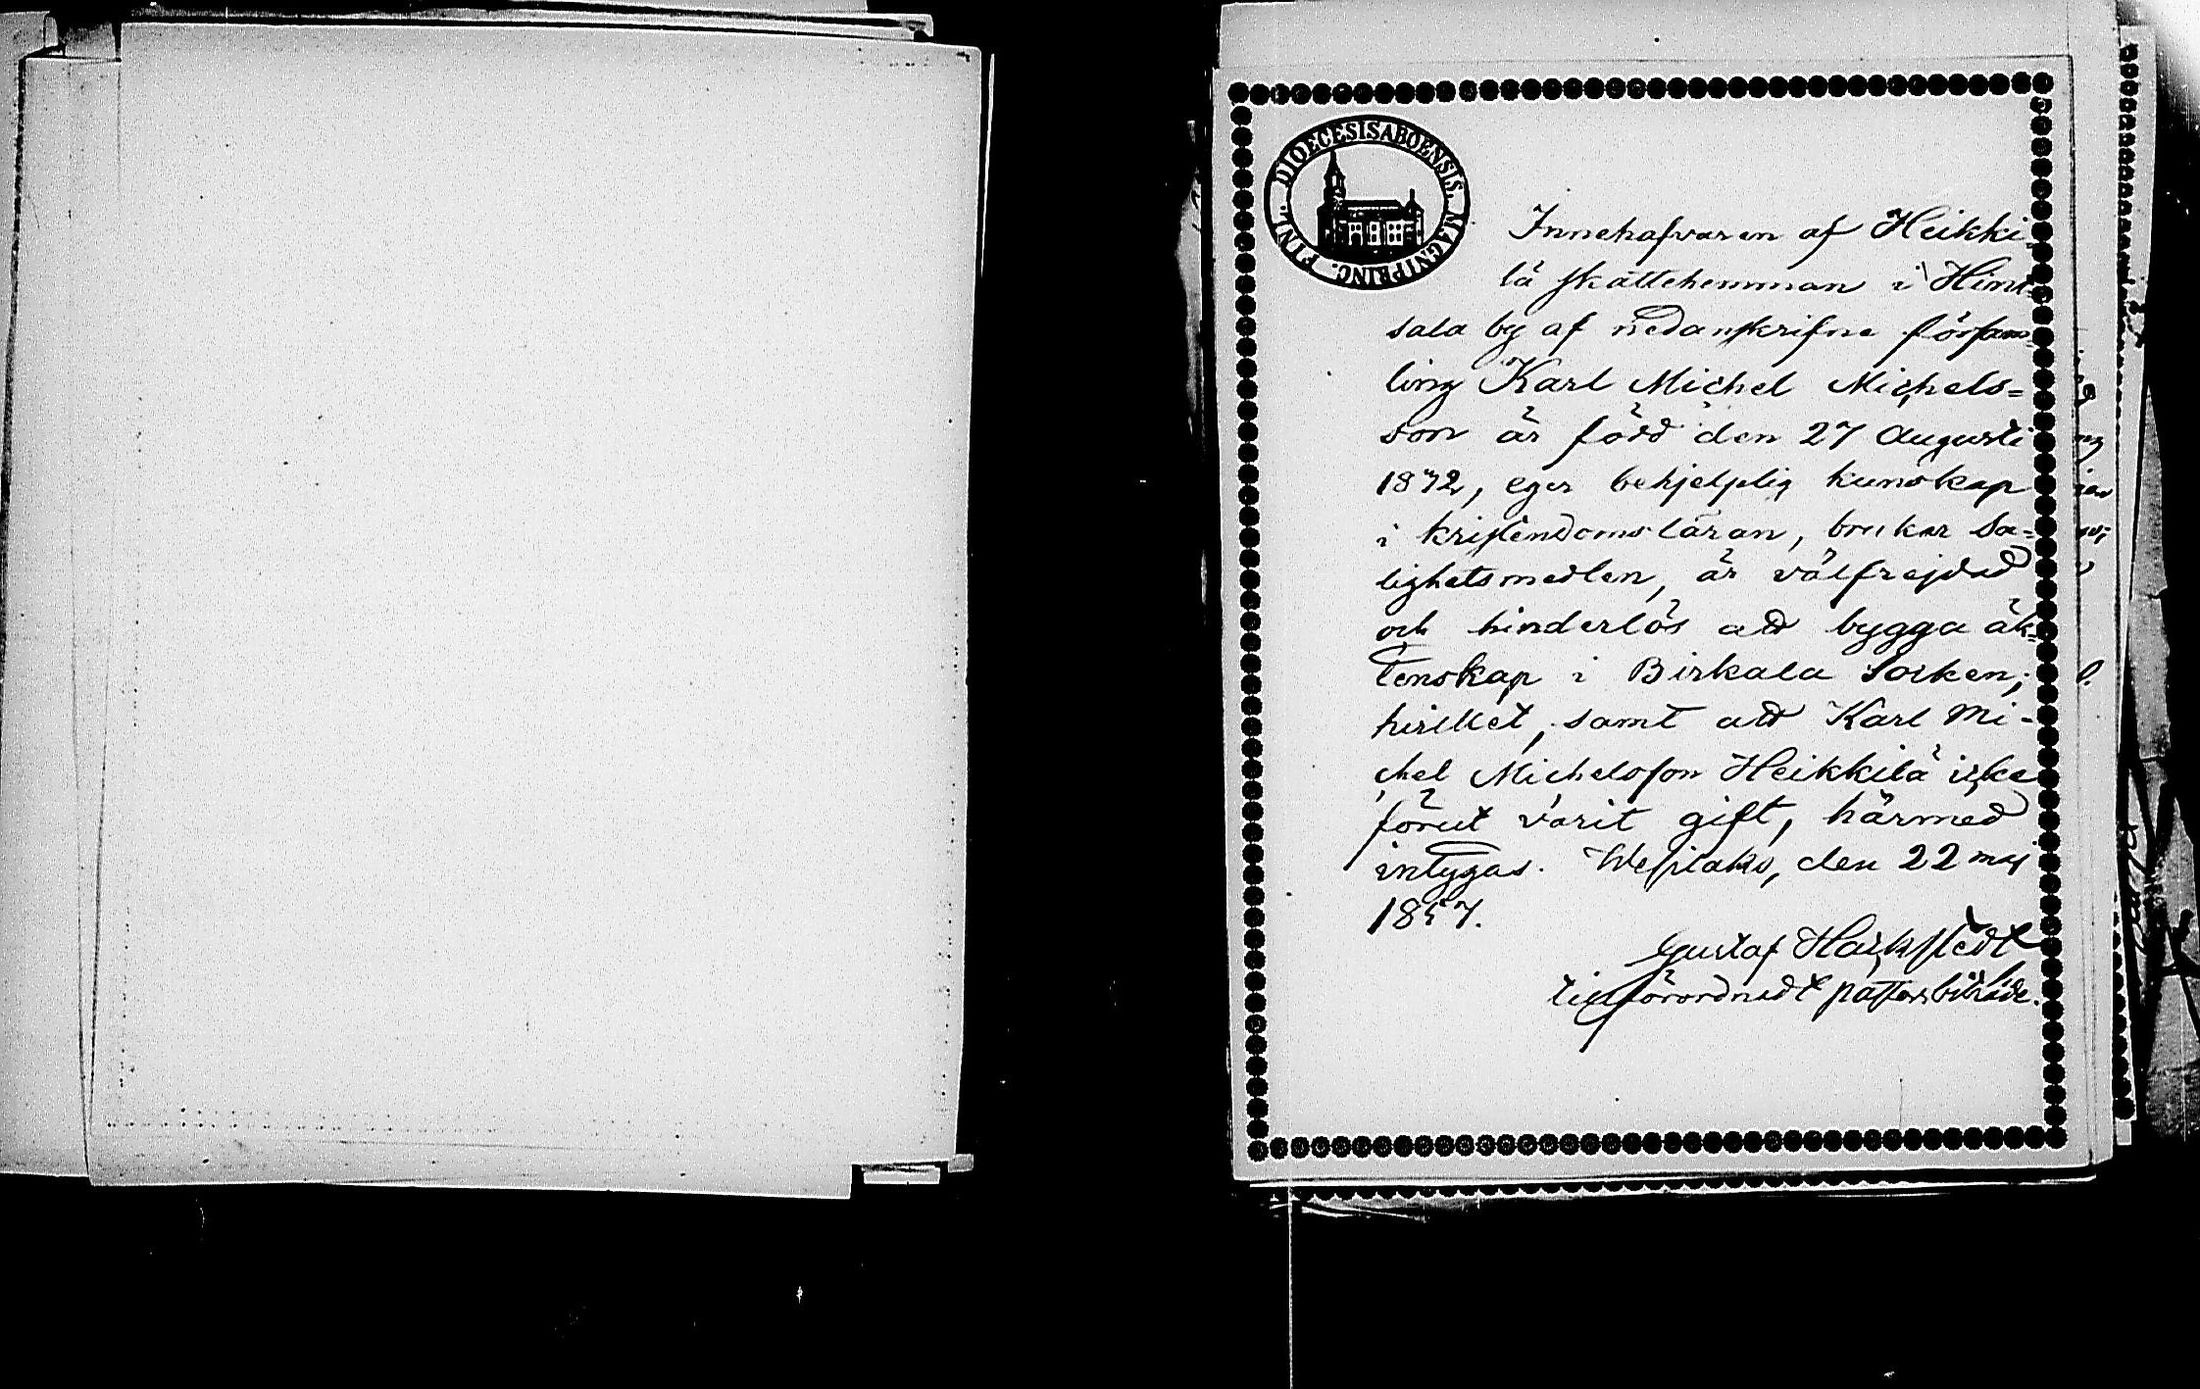 DIOECESIS ABOENSIS. MAGNI PRINC. FINL.
Innehafvaren af Heikki-
lä skattehemman i Himt-
sala by af nedanskrifne försam-
ling Karl Michel Michels-
son är född den 27 Augusti
1872, eger behjelplig kunskap
i kristendomsläran, brukar sa-
lighetsmedlen, är välfrejdad
och hinderlös att bygga äk-
tenskap i Birkala socken;
hvilket, samt att Karl Mi-
chel Michelsson Heikkilä icke
förut varit gift, härmed
intygas. Wesilaks, den 22 maj
1897.
Gustaf
tillförordnadt pastorsbiträde.